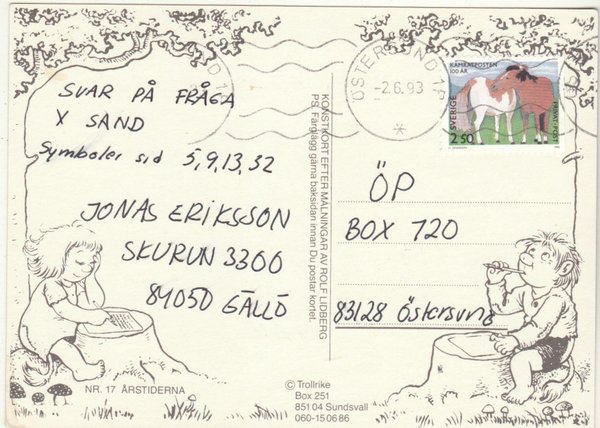 SVAR PÅ FRÅGA
X SAND
Symboler sid 5,9,13,32
JONAS ERIKSSON
SKURUN 3300
84050 GÄLLÖ
NR. 17 ÅRSTIDERNA
KONSTKORT EFTER MÅLNINGAR AV ROLF LIDBERG
PS. Färglägg gärna baksidan innan Du postar kortet.
© Trollrike
Box 251
851 04 Sundsvall
060-15 06 86
ÖSTERSUND 1
-2.6.93
KAMRATPOSTEN
100 ÅR
SVERIGE
PRIVATPOST
2.50
ÖP
BOX 720
83128 Östersund